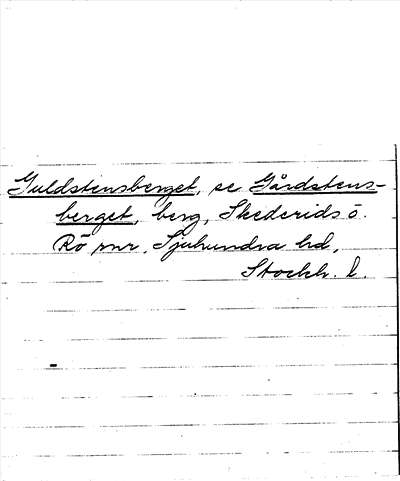 Guldstensberget, se Gårdstens-
berget, berg, Skederids ö.
Rö snr, Sjuhundra hd,
Stockh. l.